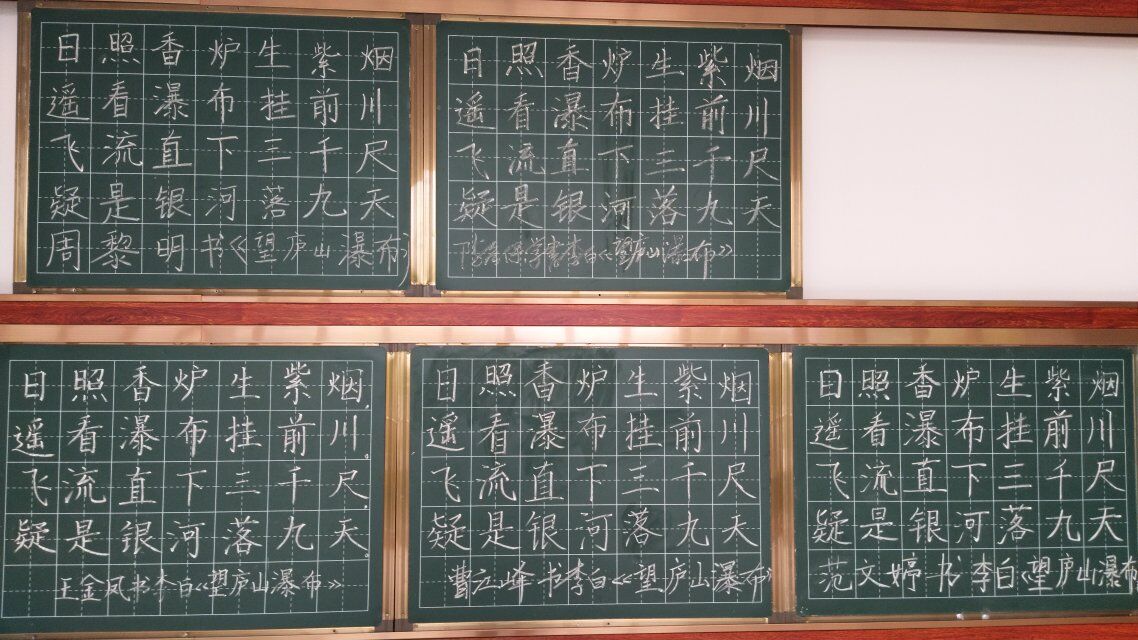 日照香炉生紫烟
遥看瀑布挂前川
飞流直下三千尺
疑是银河落九天
周黎明书《望庐山瀑布》
日照香炉生紫烟
遥看瀑布挂前川
飞流直下三千尺
疑是银河落九天
书李白《望庐山瀑布》
日照香炉生紫烟,
遥看瀑布挂前川。
飞流直下三千尺,
疑是银河落九天。
王金凤书李白《望庐山瀑布》
日照香炉生紫烟
遥看瀑布挂前川
飞流直下三千尺
疑是银河落九天
峰书李白《望庐山瀑布》
日照香炉生紫烟
遥看瀑布挂前川
飞流直下三千尺
疑是银河落九天
范文婷书李白《望庐山瀑布